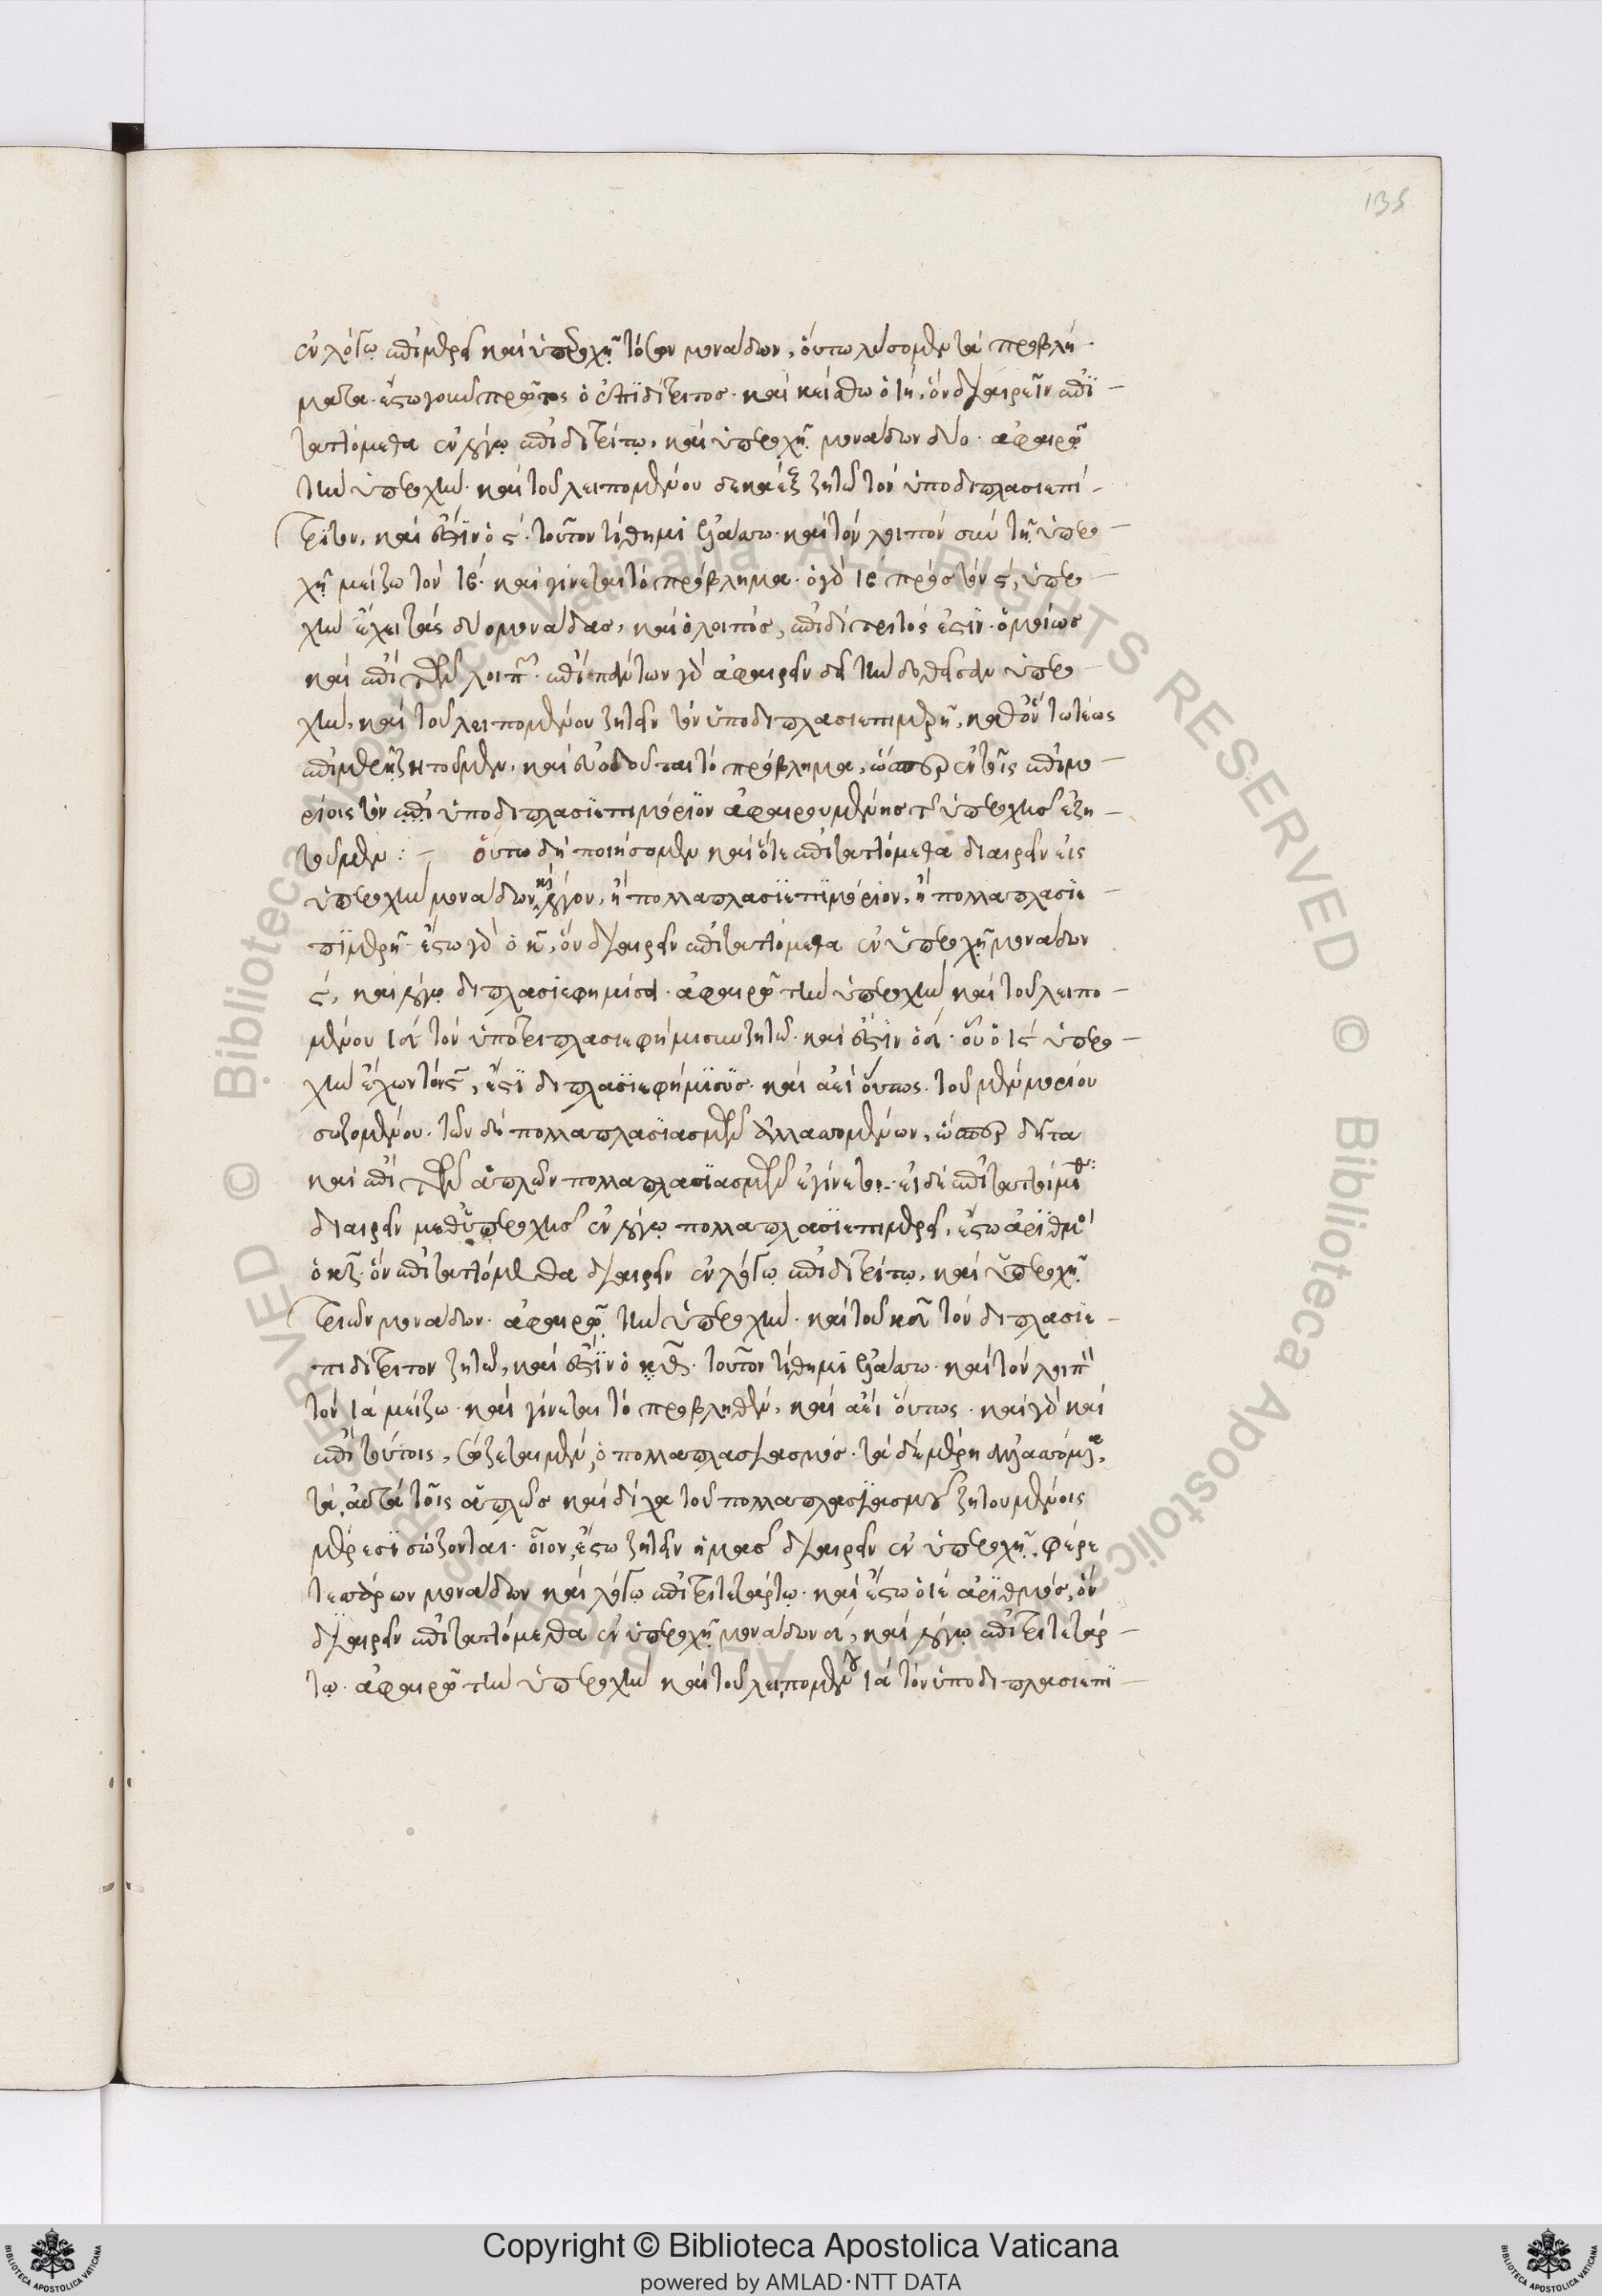 135
ἐν λόγῳ ἐπιμερεῖ καὶ ὑπεροχῇ τόσων μονάδων, οὕτω λύσομεν τὰ προβλή-
ματα. ἔστω γοῦν πρῶτος ὁ ἐπιδίτριτος. καὶ κείσθω ὁ ιη, ὃν διαιρεῖν ἐπι-
ταττόμεθα ἐν λόγῳ ἐπιδιτρίτῳ, καὶ ὑπεροχῇ μονάδων δύο. ἀφαιρῶ
τὴν ὑπεροχήν. καὶ τοῦ λειπομένου δεκαὲξ ζητῶ τὸν ὑποδιπλασιεπι-
τριτον, καὶ ἔστιν ὁ ς. τοῦτον τίθημι ἐλάττω. καὶ τὸν λοιπὸν σὺν τῇ ὑπερο-
χῇ μείζω τὸν ιβ. καὶ γίνεται τὸ πρόβλημα. ὁ γὰρ ιβ πρὸς τὸν ς, ὑπερο-
χὴν ἔχει τὰς δύο μονάδας, καὶ ὁ λοιπὸς, ἐπιδίτριτός ἐστιν. ὁμοίως
καὶ ἐπὶ τῶν λοιπῶν. ἐπὶ πάντων γὰρ ἀφαιρεῖν δεῖ τὴν δοθεῖσαν ὑπερο-
χὴν, καὶ τοῦ λειπομένου ζητεῖν τὸν ὑποδιπλασιεπιμερῆ, καθ' ὃν
ἐπιμερῆ ζητοῦμεν. καὶ εὐοδοῦται τὸ πρόβλημα, ὥσπερ ἐν τοῖς ἐπιμο-
ρίοις τὸν ὑποδιπλασιεπιμόριον ἀφαιρουμένης τῆς ὑπεροχῆς ἐζη-
τοῦμεν :- οὕτω δὴ ποιήσομεν καὶ ὅτε ἐπιταττόμεθα διαιρεῖν εἰς
ὑπεροχὴν μονάδων καὶ λόγον, ἢ πολλαπλασιεπιμόριον, ἢ πολλαπλασιε-
πιμερῆ. ἔστω γὰρ ὁ κ, ὃν διαιρεῖν ἐπιταττόμεθα ἐν ὑπεροχῇ μονάδων
ς, καὶ λόγῳ διπλασιεφημίσει. ἀφαιρῶ τὴν ὑπεροχὴν καὶ τοῦ λειπο-
μένου ιδ τὸν ὑποτριπλασιεφήμισυν ζητῶ. καὶ ἔστιν ὁ δ. οὗ ὁ ις ὑπερο-
χὴν ἔχων τὸν ς, ἐστὶ διπλασιεφήμισυς. καὶ ἀεὶ οὕτως. τοῦ μὲν μορίου
σωζομένου. τῶν δὲ πολλαπλασιασμῶν ἀλλαττομένων, ὥσπερ δῆτα
καὶ ἐπὶ τῶν ἁπλῶν πολλαπλασιασμῶν ἐγίνετο. εἰ δὲ ἐπιταττοίμεθα
διαιρεῖν μεθ' ὑπεροχῆς ἐν λόγῳ πολλαπλασιεπιμερεῖ, ἔστω ἀριθμὸς
ὁ κζ. ὃν ἐπιταττόμεθα διαιρεῖν ἐν λόγῳ ἐπιδιτρίτῳ, καὶ ὑπεροχῇ
τριῶν μονάδων. ἀφαιρῶ τὴν ὑπεροχήν. καὶ τοῦ κδ τὸν διπλασιε-
πιδίτριτον ζητῶ, καὶ ἔστιν ὁ θ. τοῦτον τίθημι ἐλάττω. καὶ τὸν λοιπὸν
τὸν ια μείζω. καὶ γίνεται τὸ προβληθέν, καὶ ἀεὶ οὕτως. καὶ γὰρ καὶ
ἐπὶ τούτοις, σώζεται μὲν ὁ πολλαπλασιασμός. τὰ δὲ μέρη ἀλλαττόμενα,
τὰ αὐτὰ τοῖς ἁπλῶς καὶ δίχα τοῦ πολλαπλασιασμοῦ ζητουμένοις
μέρεσι σώζονται. οἷον, ἔστω ζητεῖν ἡμᾶς διαιρεῖν ἐν ὑπεροχῇ, φέρε
τεσσάρων μονάδων καὶ λόγῳ ἐπιτριτετάρτῳ. καὶ ἔστω ὁ ιε ἀριθμός, ὃν
διαιρεῖν ἐπιταττόμεθα ἐν ὑπεροχῇ μονάδων δ, καὶ λόγῳ ἐπιτριτετάρ-
τῳ. ἀφαιρῶ τὴν ὑπεροχὴν καὶ τοῦ λειπομένου ια τὸν ὑποδιπλασιεπι-
Copyright © Biblioteca Apostolica Vaticana
powered by AMLAD·NTT DATA